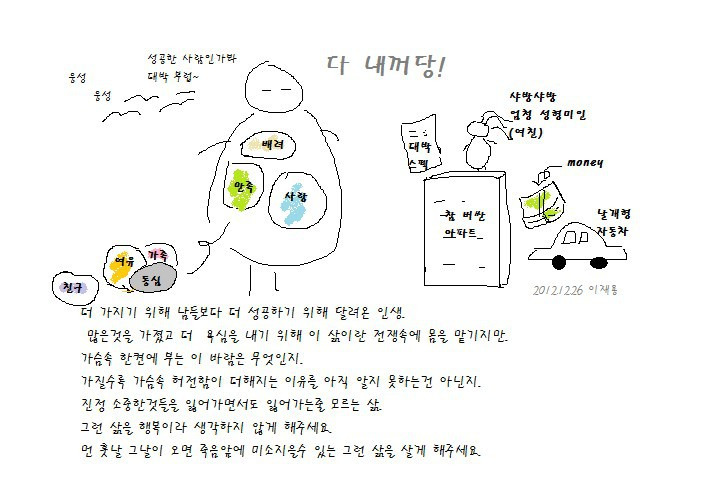 성공한 사람인가봐
대박 부럽~
웅성
웅성
다 내꺼당!
배려
만족
사랑
여유
가족
동심
친구
대박
스펙
샤방샤방
엄청 성형미인
(여친)
money
참 비싼
아파트
날개형
자동차
20121226 이재홍
더 가지기 위해 남들보다 더 성공하기 위해 달려온 인생.
많은것을 가졌고 더 욕심을 내기 위해 이 삶이란 전쟁속에 몸을 맡기지만.
가슴속 한켠에 부는 이 바람은 무엇인지.
가질수록 가슴속 허전함이 더해지는 이유를 아직 알지 못하는건 아닌지.
진정 소중한것들을 잃어가면서도 잃어가는줄 모르는 삶.
그런 삶을 행복이라 생각하지 않게 해주세요.
먼 훗날 그날이 오면 죽음앞에 미소지을수 있는 그런 삶을 살게 해주세요.